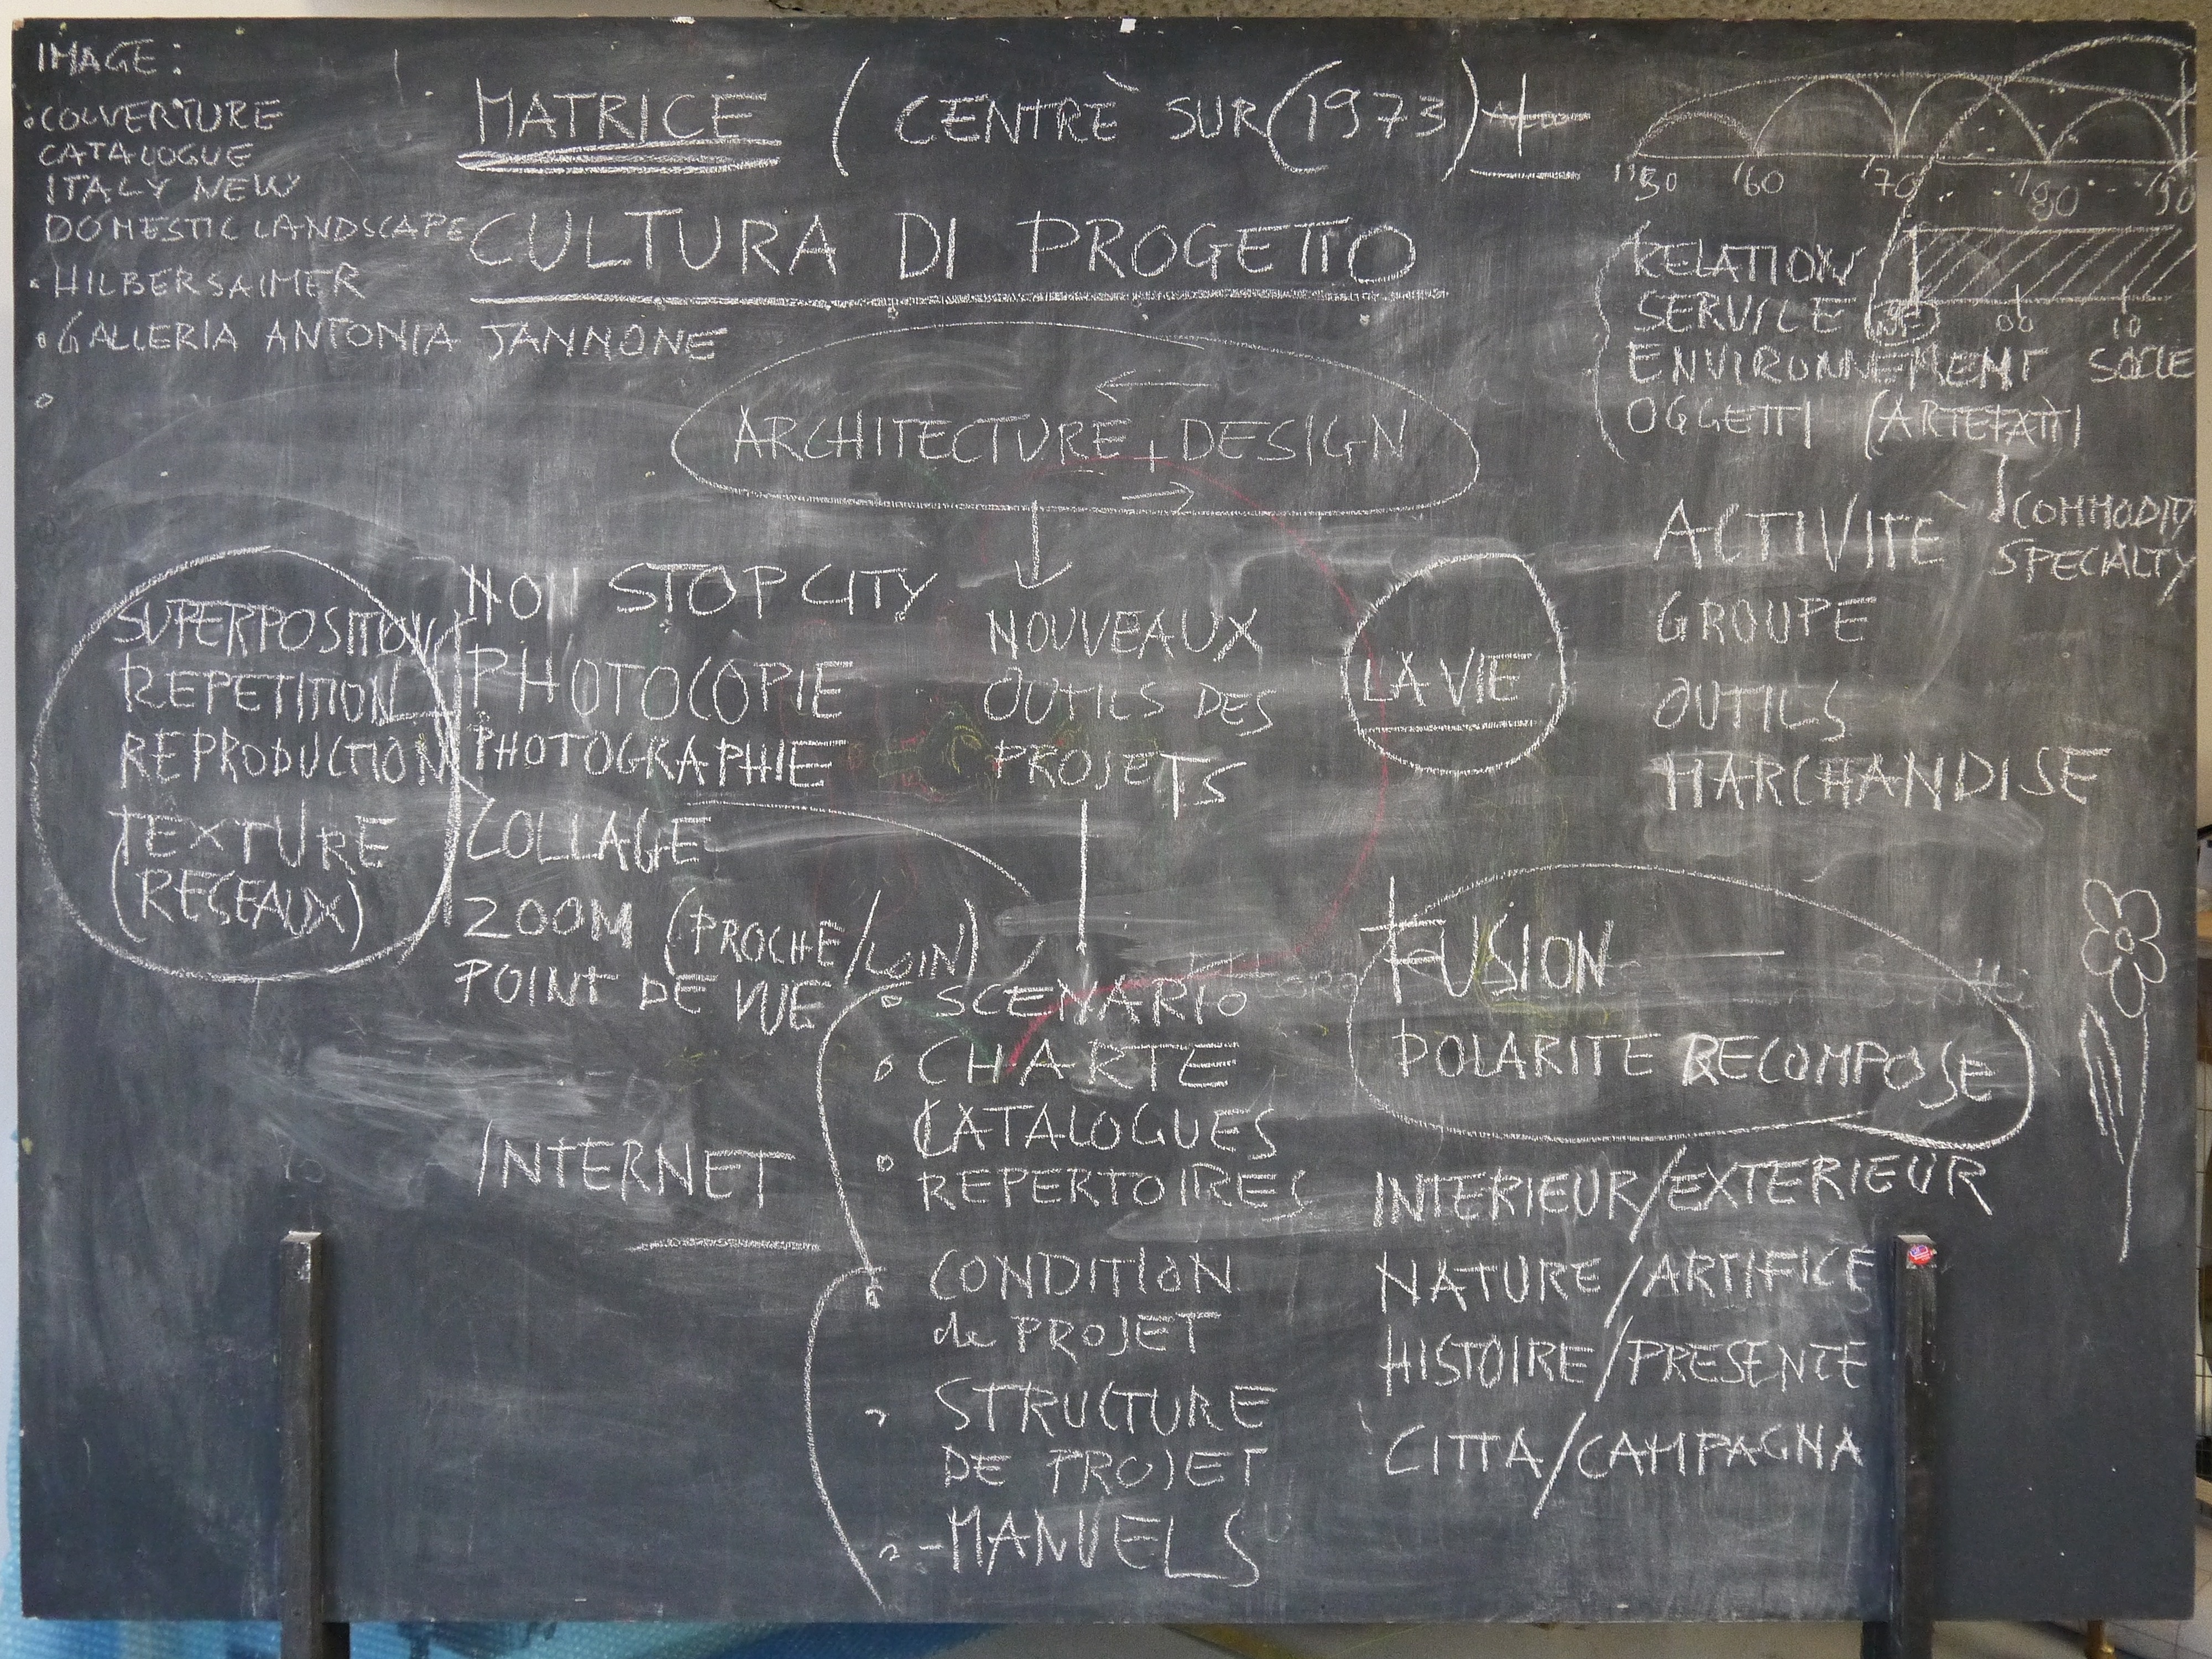 IMAGE:
COUVERTURE
CATALOGUE
ITALY NEW
DOMESTIC LANDSCAPE
HILBERSAIMER
GALLERIA ANTONIA JANNONE
MATRICE (CENTRÈ SUR (1973) +
CULTURA DI PROGETTO
ARCHITECTURE + DESIGN
'60 '70 '80 '90
00 10
RELATION
SERVICE
ENVIRONNEMENT SOCIE
OGGETTI (ARTEFATTI
COMMODITY
SPECIALTY
ACTIVITE
GROUPE
OUTILS
MARCHANDISE
SUPERPOSITION
REPETITION
REPRODUCTION
TEXTURE
(RESEAUX)
NON STOP CITY
PHOTOCOPIE
PHOTOGRAPHIE
COLLAGE
ZOOM (PROCHE/LOIN)
POINT DE VUE
INTERNET
NOUVEAUX
OUTILS DES
PROJETS
LA VIE
SCENARIO
CHARTE
CATALOGUES
REPERTOIRES
CONDITION
de PROJET
STRUCTURE
DE PROJET
-MANUELS
FUSION
POLARITE RECOMPOSE
INTERIEUR/EXTERIEUR
NATURE/ARTIFICE
HISTOIRE/PRESENTE
CITTA/CAMPAGNA